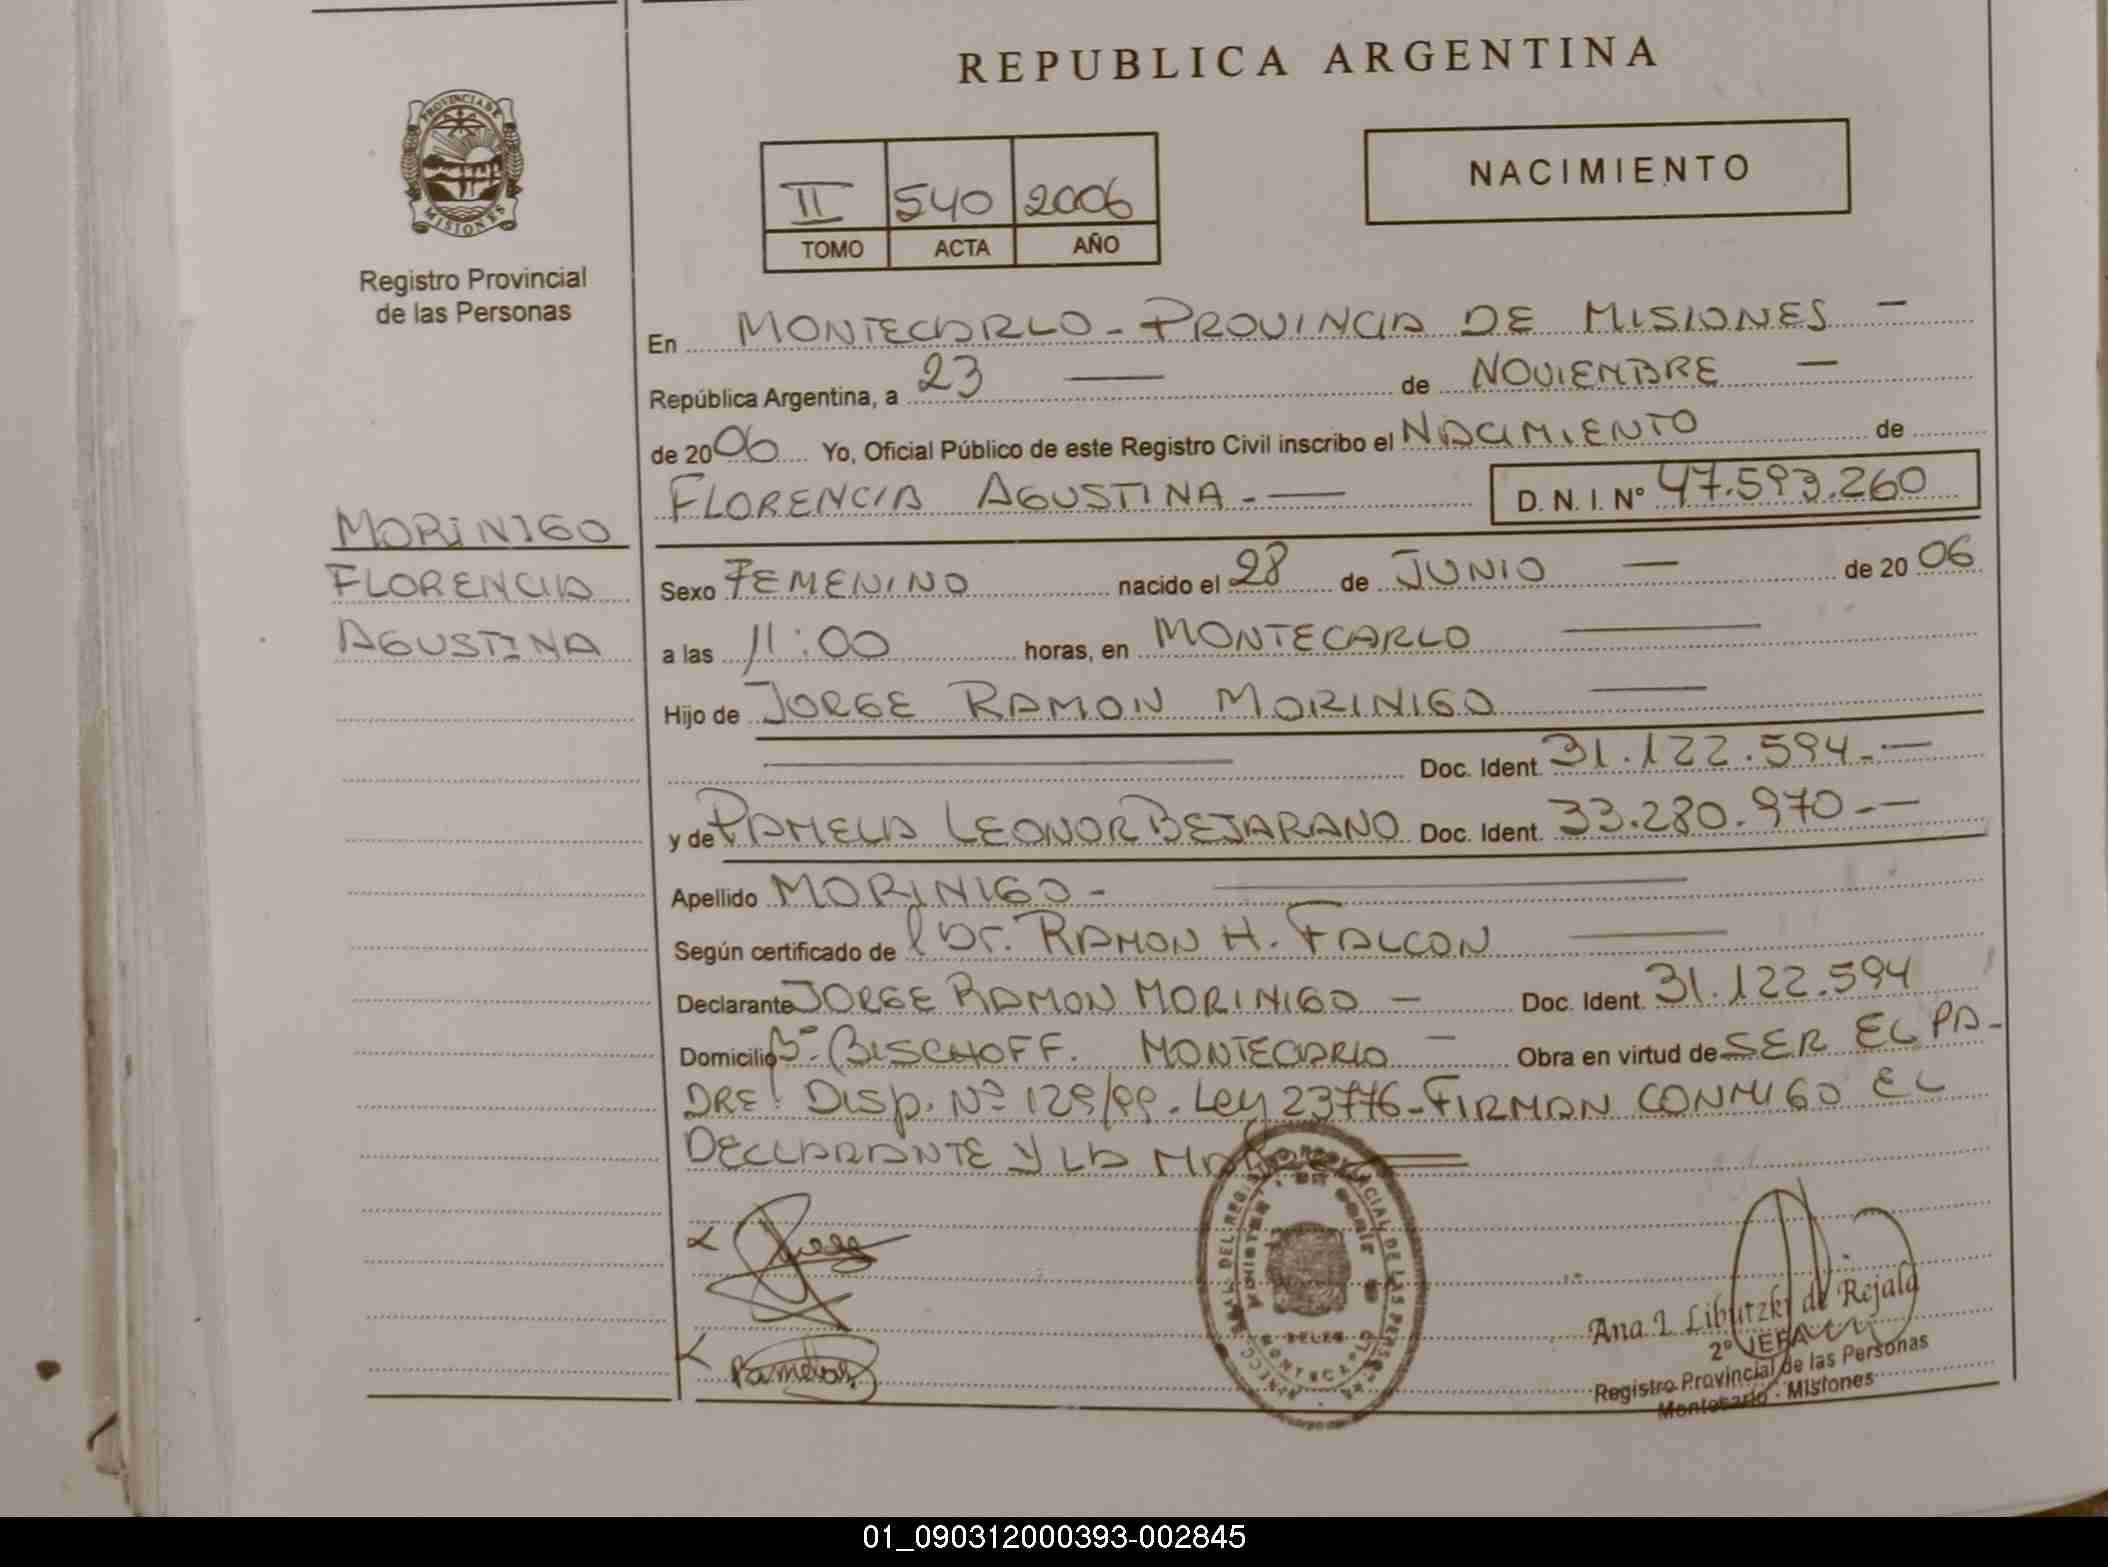 REPUBLICA ARGENTINA
PROVINCIA DE
MISIONES
Registro Provincial
de las Personas
NACIMIENTO
II 540 2006
TOMO ACTA AÑO
En MONTECARLO - PROVINCIA DE MISIONES —
República Argentina, a 23 — de NOVIEMBRE —
de 2006 Yo, Oficial Público de este Registro Civil inscribo el NACIMIENTO de
FLORENCIA AGUSTINA.- — D. N. I. N° 47.593.260
MORINIGO
FLORENCIA
AGUSTINA
Sexo FEMENINO nacido el 28 de JUNIO — de 2006
a las 11:00 horas, en MONTECARLO —
Hijo de JORGE RAMON MORINIGO —
— Doc. Ident. 31.122.594.-—
y de PAMELA LEONOR BEJARANO Doc. Ident. 33.280.970.-—
Apellido MORINIGO - —
Según certificado de l Dr. RAMON H. FALCON —
Declarante JORGE RAMON MORINIGO — Doc. Ident. 31.122.594
Domicilio B°. BISCHOFF. MONTECARLO — Obra en virtud de SER EL PA-
DRE! Disp. Nº 129/99. Ley 23776-FIRMAN CONMIGO EL
DECLARANTE Y LA MADRE
DEL REGISTRO PROVINCIAL DE LAS PERSONAS
Pamela
Ana I. Libutzki de Rejala
2° JEFA
Registro Provincial de las Personas
Montecarlo - Misiones
01_090312000393-002845